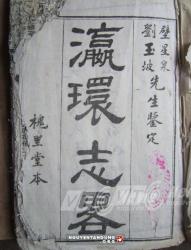 壁星泉
劉玉坡先生鑒定
瀛環志畧
桃里堂本
NGUYENTANDUNG.ORG